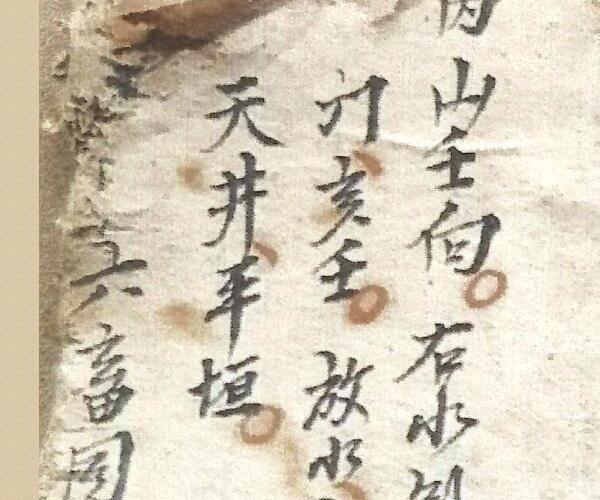 丙山壬向右水到
亥壬放水
天井平垣
六畜